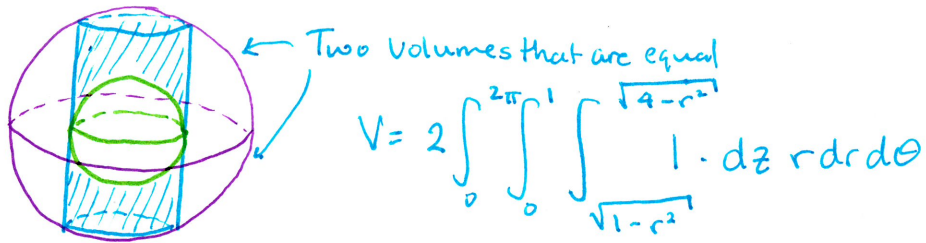 Two volumes that are equal
V = 2 ∫₀^{2π} ∫₀^{1} ∫_{√(1-r²)}^{√(4-r²)} 1 · dz r dr dθ